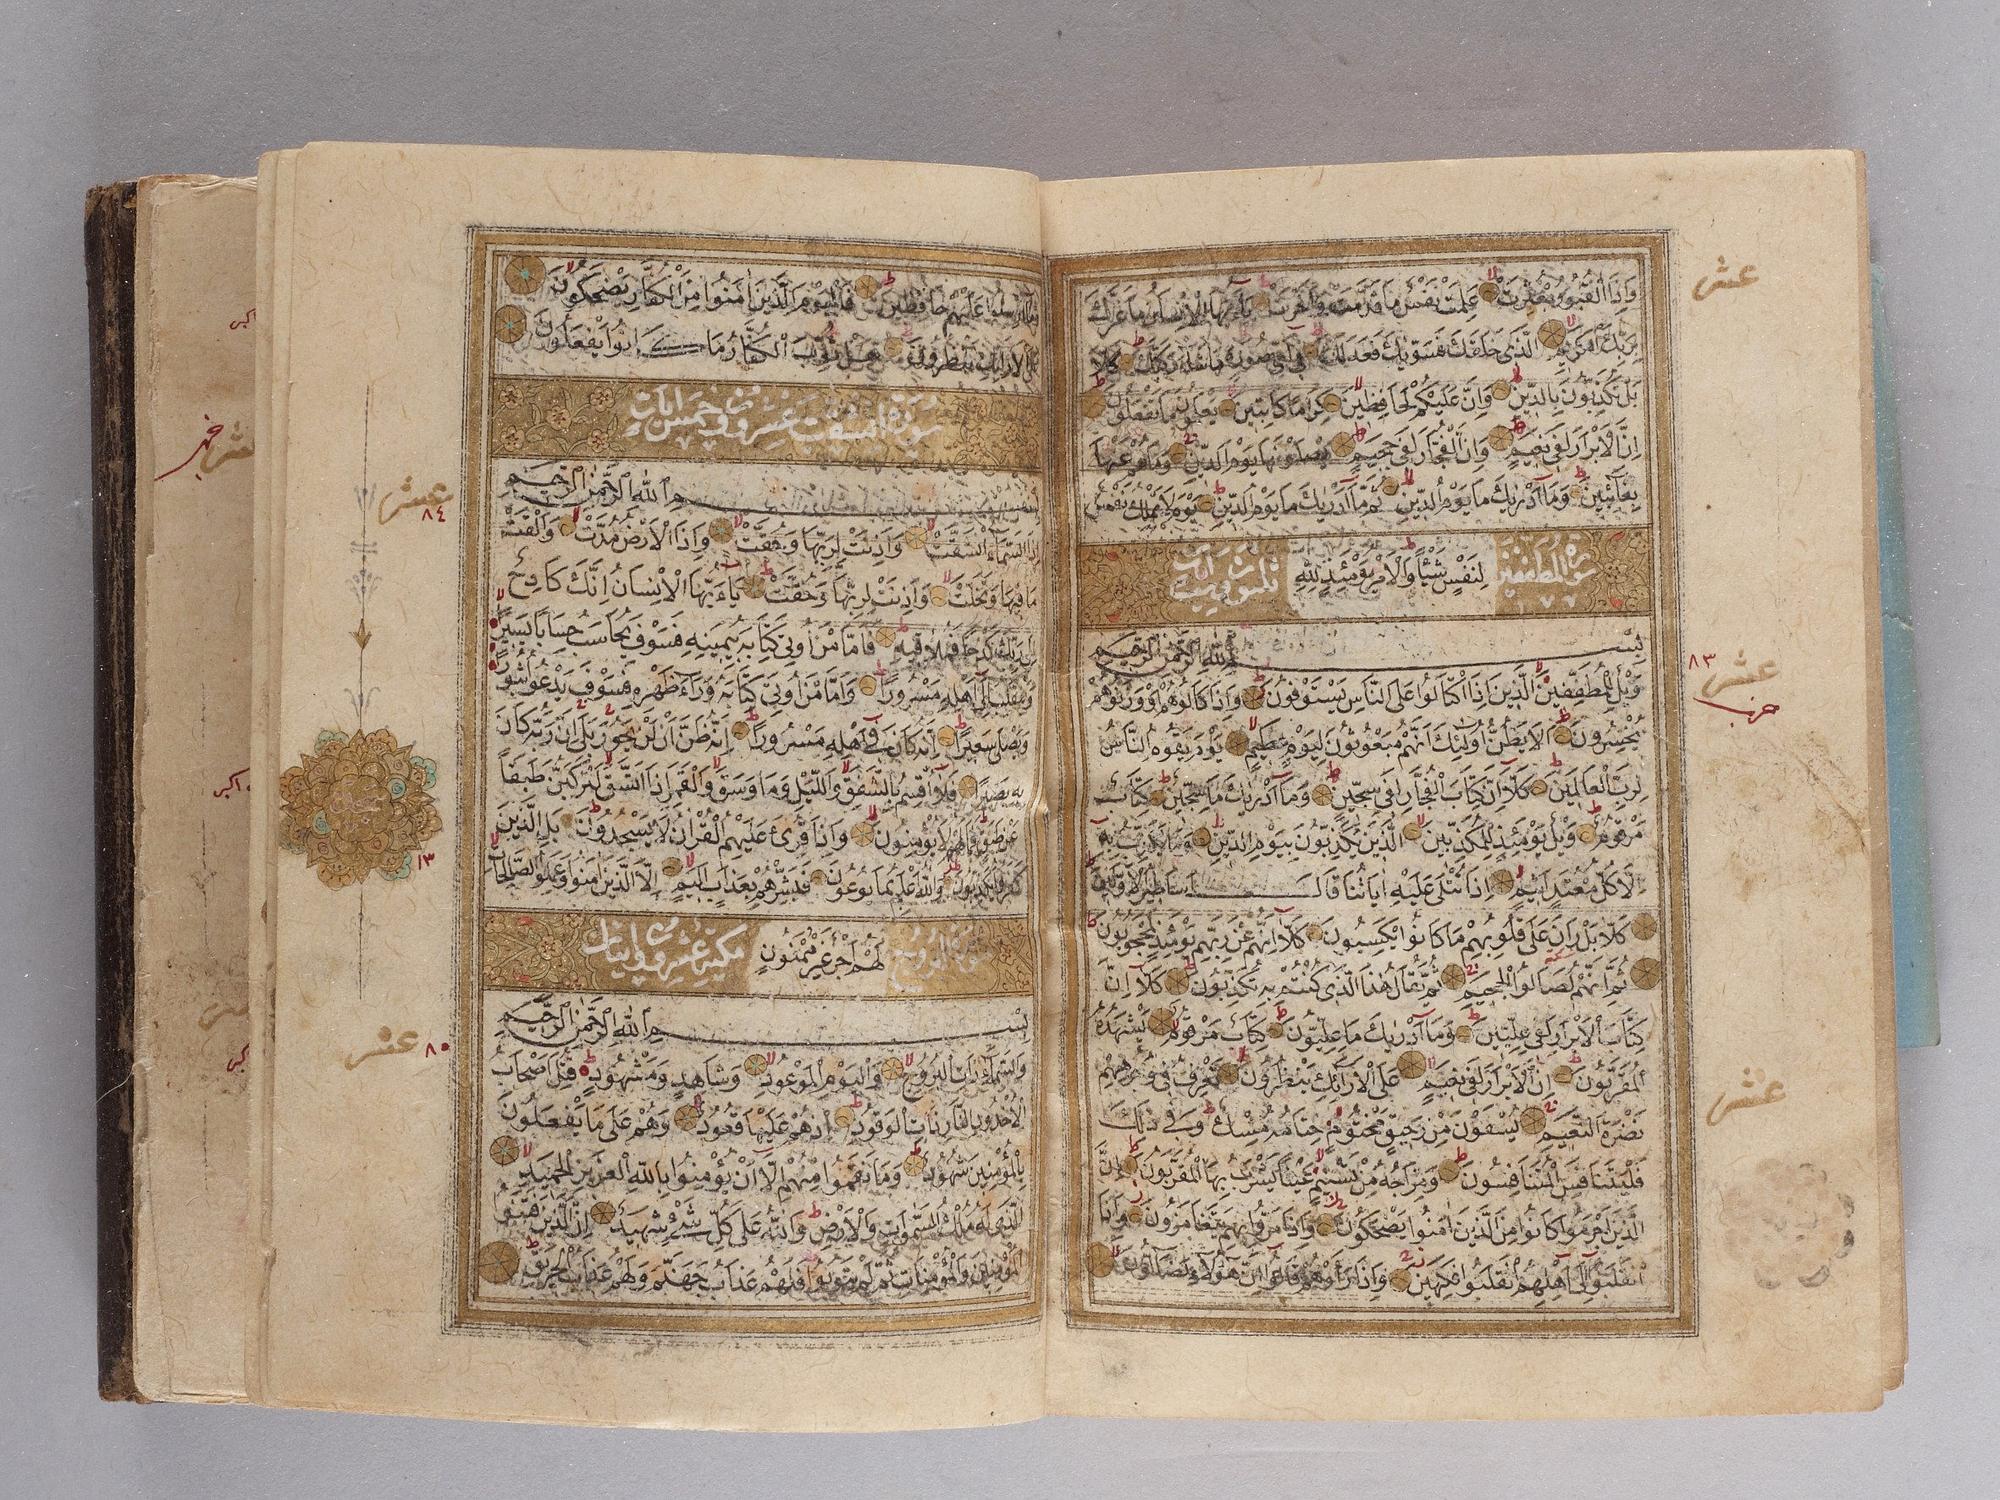 وَاِذَا الْقُبُورُ بُعْثِرَتْ عَلِمَتْ نَفْسٌ مَا قَدَّمَتْ وَاَخَّرَتْ يَاءَيُّهَا الْاِنْسَانُ مَا غَرَّكَ
بِرَبِّكَ الْكَرِيمِ الَّذِي خَلَقَكَ فَسَوّٰيكَ فَعَدَلَكَ فِي اَيِّ صُورَةٍ مَا شَاءَ رَكَّبَكَ كَلَّا
بَلْ تُكَذِّبُونَ بِالدِّينِ وَاِنَّ عَلَيْكُمْ لَحَافِظِينَ كِرَامًا كَاتِبِينَ يَعْلَمُونَ مَا تَفْعَلُونَ
اِنَّ الْاَبْرَارَ لَفِي نَعِيمٍ وَاِنَّ الْفُجَّارَ لَفِي جَحِيمٍ يَصْلَوْنَهَا يَوْمَ الدِّينِ وَمَا هُمْ عَنْهَا
بِغَائِبِينَ وَمَا اَدْرٰيكَ مَا يَوْمُ الدِّينِ ثُمَّ مَا اَدْرٰيكَ مَا يَوْمُ الدِّينِ يَوْمَ لَا تَمْلِكُ نَفْسٌ
سُورَةُ الْمُطَفِّفِينَ لِنَفْسٍ شَيْئًا وَالْاَمْرُ يَوْمَئِذٍ لِلّٰهِ
بِسْمِ اللّٰهِ الرَّحْمٰنِ الرَّحِيمِ
وَيْلٌ لِلْمُطَفِّفِينَ الَّذِينَ اِذَا اكْتَالُوا عَلَى النَّاسِ يَسْتَوْفُونَ وَاِذَا كَالُوهُمْ اَوْ وَزَنُوهُمْ
يُخْسِرُونَ اَلَا يَظُنُّ اُولٰئِكَ اَنَّهُمْ مَبْعُوثُونَ لِيَوْمٍ عَظِيمٍ يَوْمَ يَقُومُ النَّاسُ
لِرَبِّ الْعَالَمِينَ كَلَّا اِنَّ كِتَابَ الْفُجَّارِ لَفِي سِجِّينٍ وَمَا اَدْرٰيكَ مَا سِجِّينٌ كِتَابٌ
مَرْقُومٌ وَيْلٌ يَوْمَئِذٍ لِلْمُكَذِّبِينَ الَّذِينَ يُكَذِّبُونَ بِيَوْمِ الدِّينِ وَمَا يُكَذِّبُ بِهِ
اِلَّا كُلُّ مُعْتَدٍ اَثِيمٍ اِذَا تُتْلٰى عَلَيْهِ اٰيَاتُنَا قَالَ اَسَاطِيرُ الْاَوَّلِينَ
كَلَّا بَلْ رَانَ عَلٰى قُلُوبِهِمْ مَا كَانُوا يَكْسِبُونَ كَلَّا اِنَّهُمْ عَنْ رَبِّهِمْ يَوْمَئِذٍ لَمَحْجُوبُونَ
ثُمَّ اِنَّهُمْ لَصَالُوا الْجَحِيمِ ثُمَّ يُقَالُ هٰذَا الَّذِي كُنْتُمْ بِهِ تُكَذِّبُونَ كَلَّا اِنَّ
كِتَابَ الْاَبْرَارِ لَفِي عِلِّيِّينَ وَمَا اَدْرٰيكَ مَا عِلِّيُّونَ كِتَابٌ مَرْقُومٌ يَشْهَدُهُ
الْمُقَرَّبُونَ اِنَّ الْاَبْرَارَ لَفِي نَعِيمٍ عَلَى الْاَرَائِكِ يَنْظُرُونَ تَعْرِفُ فِي وُجُوهِهِمْ
نَضْرَةَ النَّعِيمِ يُسْقَوْنَ مِنْ رَحِيقٍ مَخْتُومٍ خِتَامُهُ مِسْكٌ وَفِي ذٰلِكَ
فَلْيَتَنَافَسِ الْمُتَنَافِسُونَ وَمِزَاجُهُ مِنْ تَسْنِيمٍ عَيْنًا يَشْرَبُ بِهَا الْمُقَرَّبُونَ اِنَّ
الَّذِينَ اَجْرَمُوا كَانُوا مِنَ الَّذِينَ اٰمَنُوا يَضْحَكُونَ وَاِذَا مَرُّوا بِهِمْ يَتَغَامَزُونَ وَاِذَا
انْقَلَبُوا اِلٰى اَهْلِهِمُ انْقَلَبُوا فَكِهِينَ وَاِذَا رَاَوْهُمْ قَالُوا اِنَّ هٰؤُلَاءِ لَضَالُّونَ
عشر
٨٣
عشر
حزب
عشر
وَمَا اُرْسِلُوا عَلَيْهِمْ حَافِظِينَ فَالْيَوْمَ الَّذِينَ اٰمَنُوا مِنَ الْكُفَّارِ يَضْحَكُونَ
عَلَى الْاَرَائِكِ يَنْظُرُونَ هَلْ ثُوِّبَ الْكُفَّارُ مَا كَانُوا يَفْعَلُونَ
سُورَةُ انْشَقَّتْ عِشْرُونَ وَخَمْسُ اٰيَاتٍ
بِسْمِ اللّٰهِ الرَّحْمٰنِ الرَّحِيمِ
اِذَا السَّمَاءُ انْشَقَّتْ وَاَذِنَتْ لِرَبِّهَا وَحُقَّتْ وَاِذَا الْاَرْضُ مُدَّتْ وَاَلْقَتْ
مَا فِيهَا وَتَخَلَّتْ وَاَذِنَتْ لِرَبِّهَا وَحُقَّتْ يَاءَيُّهَا الْاِنْسَانُ اِنَّكَ كَادِحٌ
اِلٰى رَبِّكَ كَدْحًا فَمُلَاقِيهِ فَاَمَّا مَنْ اُوتِيَ كِتَابَهُ بِيَمِينِهِ فَسَوْفَ يُحَاسَبُ حِسَابًا يَسِيرًا
وَيَنْقَلِبُ اِلٰى اَهْلِهِ مَسْرُورًا وَاَمَّا مَنْ اُوتِيَ كِتَابَهُ وَرَاءَ ظَهْرِهِ فَسَوْفَ يَدْعُو ثُبُورًا
وَيَصْلٰى سَعِيرًا اِنَّهُ كَانَ فِي اَهْلِهِ مَسْرُورًا اِنَّهُ ظَنَّ اَنْ لَنْ يَحُورَ بَلٰى اِنَّ رَبَّهُ كَانَ
بِهِ بَصِيرًا فَلَا اُقْسِمُ بِالشَّفَقِ وَالَّيْلِ وَمَا وَسَقَ وَالْقَمَرِ اِذَا اتَّسَقَ لَتَرْكَبُنَّ طَبَقًا
عَنْ طَبَقٍ فَمَا لَهُمْ لَا يُؤْمِنُونَ وَاِذَا قُرِئَ عَلَيْهِمُ الْقُرْاٰنُ لَا يَسْجُدُونَ بَلِ الَّذِينَ
كَفَرُوا يُكَذِّبُونَ وَاللّٰهُ اَعْلَمُ بِمَا يُوعُونَ فَبَشِّرْهُمْ بِعَذَابٍ اَلِيمٍ اِلَّا الَّذِينَ اٰمَنُوا وَعَمِلُوا الصَّالِحَاتِ
سُورَةُ الْبُرُوجِ لَهُمْ اَجْرٌ غَيْرُ مَمْنُونٍ
بِسْمِ اللّٰهِ الرَّحْمٰنِ الرَّحِيمِ
وَالسَّمَاءِ ذَاتِ الْبُرُوجِ وَالْيَوْمِ الْمَوْعُودِ وَشَاهِدٍ وَمَشْهُودٍ قُتِلَ اَصْحَابُ
الْاُخْدُودِ النَّارِ ذَاتِ الْوَقُودِ اِذْ هُمْ عَلَيْهَا قُعُودٌ وَهُمْ عَلٰى مَا يَفْعَلُونَ
بِالْمُؤْمِنِينَ شُهُودٌ وَمَا نَقَمُوا مِنْهُمْ اِلَّا اَنْ يُؤْمِنُوا بِاللّٰهِ الْعَزِيزِ الْحَمِيدِ
الَّذِي لَهُ مُلْكُ السَّمٰوَاتِ وَالْاَرْضِ وَاللّٰهُ عَلٰى كُلِّ شَيْءٍ شَهِيدٌ اِنَّ الَّذِينَ فَتَنُوا
الْمُؤْمِنِينَ وَالْمُؤْمِنَاتِ ثُمَّ لَمْ يَتُوبُوا فَلَهُمْ عَذَابُ جَهَنَّمَ وَلَهُمْ عَذَابُ الْحَرِيقِ
عشر
٨٤
١٣
عشر
٨٥